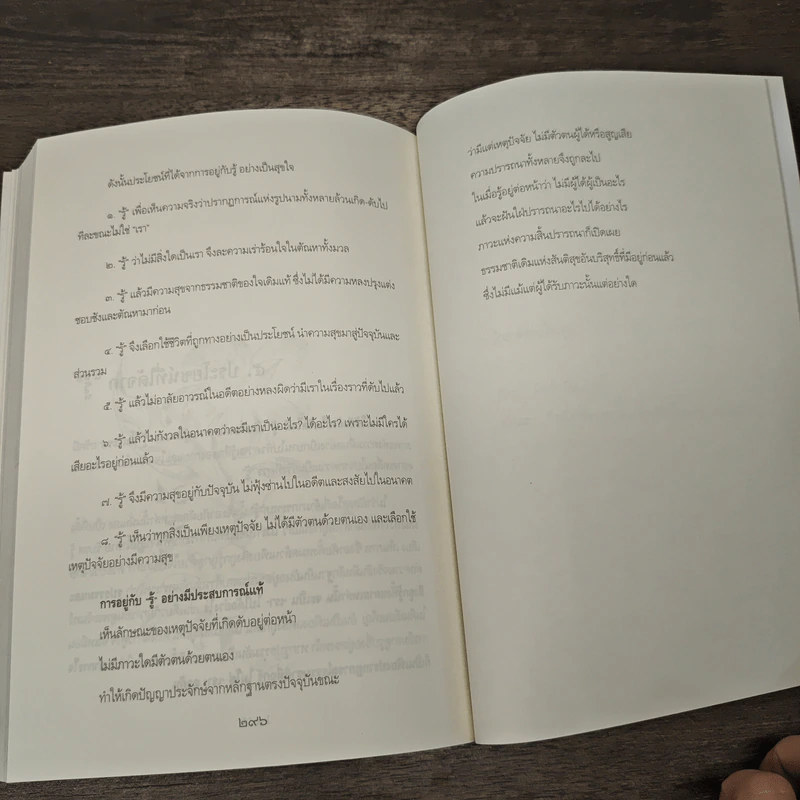 ดังนั้นประโยชน์ที่ได้จากการอยู่กับรู้ อย่างเป็นสุขใจ
๑. "รู้" เพื่อเห็นความจริงว่าปรากฏการณ์แห่งรูปนามทั้งหลายล้วนเกิด-ดับไป
ทีละขณะไม่ใช่ "เรา"
๒. "รู้" ว่าไม่มีสิ่งใดเป็นเรา จึงละความเร่าร้อนใจในตัณหาทั้งมวล
๓. "รู้" แล้วมีความสุขจากธรรมชาติของใจเดิมแท้ ซึ่งไม่ได้มีความหลงปรุงแต่ง
ชอบชังและตัณหามาก่อน
๔. "รู้" จึงเลือกใช้ชีวิตที่ถูกทางอย่างเป็นประโยชน์ นำความสุขมาสู่ปัจจุบันและ
ส่วนรวม
๕. "รู้" แล้วไม่อาลัยอาวรณ์ในอดีตอย่างหลงผิดว่ามีเราในเรื่องราวที่ดับไปแล้ว
๖. "รู้" แล้วไม่กังวลในอนาคตว่าจะมีเราเป็นอะไร? ได้อะไร? เพราะไม่มีใครได้
เสียอะไรอยู่ก่อนแล้ว
๗. "รู้" จึงมีความสุขอยู่กับปัจจุบัน ไม่ฟุ้งซ่านไปในอดีตและสงสัยไปในอนาคต
๘. "รู้" เห็นว่าทุกสิ่งเป็นเพียงเหตุปัจจัย ไม่ได้มีตัวตนด้วยตนเอง และเลือกใช้
เหตุปัจจัยอย่างมีความสุข
การอยู่กับ "รู้" อย่างมีประสบการณ์แท้
เห็นลักษณะของเหตุปัจจัยที่เกิดดับอยู่ต่อหน้า
ไม่มีภาวะใดมีตัวตนด้วยตนเอง
ทำให้เกิดปัญญาประจักษ์จากหลักฐานตรงปัจจุบันขณะ
๒๙๖
ว่ามีแต่เหตุปัจจัย ไม่มีตัวตนผู้ได้หรือสูญเสีย
ความปรารถนาทั้งหลายจึงถูกละไป
ในเมื่อรู้อยู่ต่อหน้าว่า ไม่มีผู้ได้ผู้เป็นอะไร
แล้วจะฝันใฝ่ปรารถนาอะไรไปได้อย่างไร
ภาวะแห่งความสิ้นปรารถนาก็เปิดเผย
ธรรมชาติเดิมแห่งสันติสุขอันบริสุทธิ์ที่มีอยู่ก่อนแล้ว
ซึ่งไม่มีแม้แต่ผู้ได้รับภาวะนั้นแต่อย่างใด